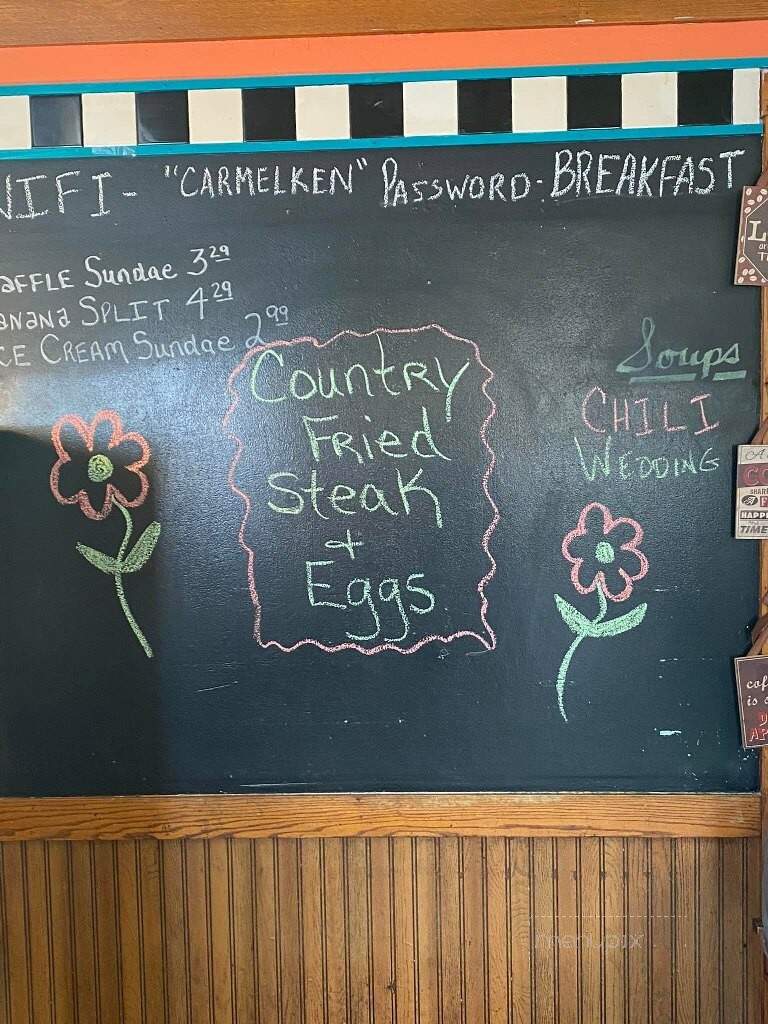 WIFI - "CARMELKEN" PASSWORD - BREAKFAST
AFFLE Sundae 3 29
ANANA SPLIT 4 29
CE CREAM Sundae 2 99
Country
Fried
Steak
+
Eggs
Soups
CHILI
WEDDING
menupix